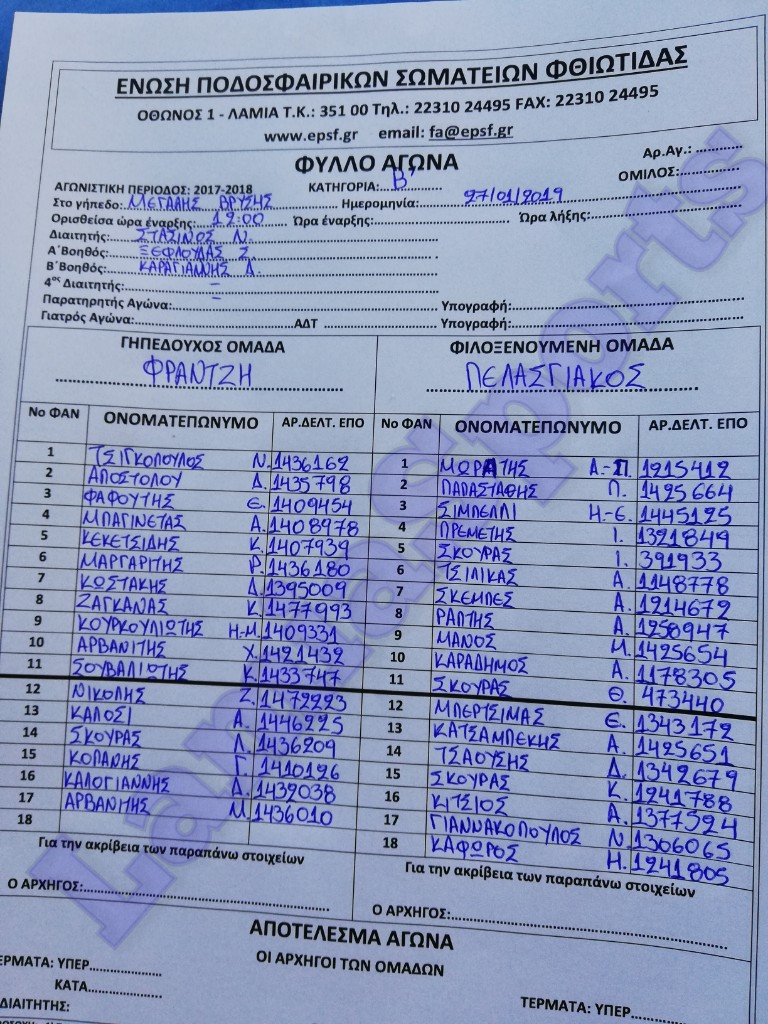 ΕΝΩΣΗ ΠΟΔΟΣΦΑΙΡΙΚΩΝ ΣΩΜΑΤΕΙΩΝ ΦΘΙΩΤΙΔΑΣ
ΟΘΩΝΟΣ 1 - ΛΑΜΙΑ Τ.Κ.: 351 00 Τηλ.: 22310 24495 FAX: 22310 24495
www.epsf.gr email: fa@epsf.gr
ΦΥΛΛΟ ΑΓΩΝΑ
Αρ.Αγ.: ...........
ΑΓΩΝΙΣΤΙΚΗ ΠΕΡΙΟΔΟΣ: 2017-2018 ΚΑΤΗΓΟΡΙΑ: Β' ΟΜΙΛΟΣ:
Στο γήπεδο: ΜΕΓΑΛΗΣ ΒΡΥΣΗΣ Ημερομηνία: 27/01/2019
Ορισθείσα ώρα έναρξης: 12:00 Ώρα έναρξης: Ώρα λήξης:
Διαιτητής: ΣΤΑΣΙΝΟΣ Ν.
Α΄Βοηθός: ΞΕΦΛΟΥΔΑΣ Σ.
Β΄Βοηθός: ΚΑΡΑΓΙΑΝΝΗΣ Δ.
4ος Διαιτητής: –
Παρατηρητής Αγώνα: – Υπογραφή:
Γιατρός Αγώνα: ΑΔΤ Υπογραφή:
ΓΗΠΕΔΟΥΧΟΣ ΟΜΑΔΑ ΦΙΛΟΞΕΝΟΥΜΕΝΗ ΟΜΑΔΑ
ΦΡΑΝΤΖΗ ΠΕΛΑΣΓΙΑΚΟΣ
Νο ΦΑΝ ΟΝΟΜΑΤΕΠΩΝΥΜΟ ΑΡ.ΔΕΛΤ. ΕΠΟ Νο ΦΑΝ ΟΝΟΜΑΤΕΠΩΝΥΜΟ ΑΡ.ΔΕΛΤ. ΕΠΟ
1 ΤΣΙΓΚΟΠΟΥΛΟΣ Ν. 1436162 1 ΜΩΡΑΤΗΣ Α.-Π. 1215412
2 ΑΠΟΣΤΟΛΟΥ Δ. 1435798 2 ΠΑΠΑΣΤΑΘΗΣ Π. 1425664
3 ΦΑΦΟΥΤΗΣ Ε. 1409454 3 ΣΙΜΠΕΛΛΙ Η.-Ε. 1445125
4 ΜΠΑΓΙΝΕΤΑΣ Α. 1408978 4 ΠΡΕΜΕΤΗΣ Ι. 1321849
5 ΚΕΚΕΤΣΙΔΗΣ Κ. 1407939 5 ΣΚΟΥΡΑΣ Ι. 391933
6 ΜΑΡΓΑΡΙΤΗΣ Ρ. 1436180 6 ΤΣΙΛΙΚΑΣ Α. 1148778
7 ΚΩΣΤΑΚΗΣ Δ. 1395009 7 ΣΚΕΜΠΕΣ Α. 1214672
8 ΖΑΓΚΑΝΑΣ Κ. 1477993 8 ΡΑΠΤΗΣ Α. 1258947
9 ΚΟΥΡΚΟΥΛΙΩΤΗΣ Η.-Μ. 1409331 9 ΜΑΝΟΣ Μ. 1425654
10 ΑΡΒΑΝΙΤΗΣ Χ. 1421432 10 ΚΑΡΑΔΗΜΟΣ Α. 1178305
11 ΣΟΥΒΑΛΙΩΤΗΣ Κ. 1433747 11 ΣΚΟΥΡΑΣ Θ. 473440
12 ΝΙΚΟΛΗΣ Ζ. 1472223 12 ΜΠΕΡΤΣΙΜΑΣ Ε. 1343172
13 ΚΑΛΟΣΙ Α. 1446225 13 ΚΑΤΣΑΜΠΕΚΗΣ Α. 1425651
14 ΣΚΟΥΡΑΣ Λ. 1436209 14 ΤΣΑΟΥΣΗΣ Δ. 1342679
15 ΚΟΠΑΝΗΣ Γ. 1410126 15 ΣΚΟΥΡΑΣ Κ. 1241788
16 ΚΑΛΟΓΙΑΝΝΗΣ Δ. 1432038 16 ΚΙΤΣΙΟΣ Α. 1377524
17 ΑΡΒΑΝΙΤΗΣ Μ. 1436010 17 ΓΙΑΝΝΑΚΟΠΟΥΛΟΣ Ν. 1306065
18 18 ΚΑΦΩΡΟΣ Η. 1241805
Για την ακρίβεια των παραπάνω στοιχείων Για την ακρίβεια των παραπάνω στοιχείων
Ο ΑΡΧΗΓΟΣ: Ο ΑΡΧΗΓΟΣ:
ΑΠΟΤΕΛΕΣΜΑ ΑΓΩΝΑ
ΟΙ ΑΡΧΗΓΟΙ ΤΩΝ ΟΜΑΔΩΝ
ΕΡΜΑΤΑ: ΥΠΕΡ ΤΕΡΜΑΤΑ: ΥΠΕΡ
ΚΑΤΑ
ΔΙΑΙΤΗΤΗΣ:
LamiaSports